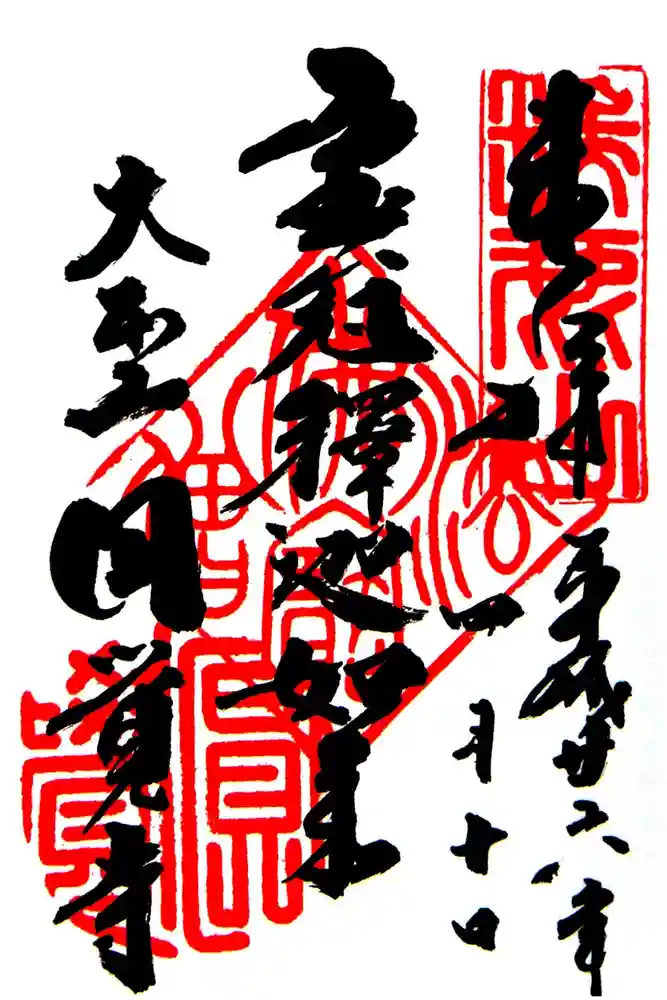 奉拝
平成廿六年
四月十日
宝冠釋迦如来
大本山
円覚寺
瑞鹿山